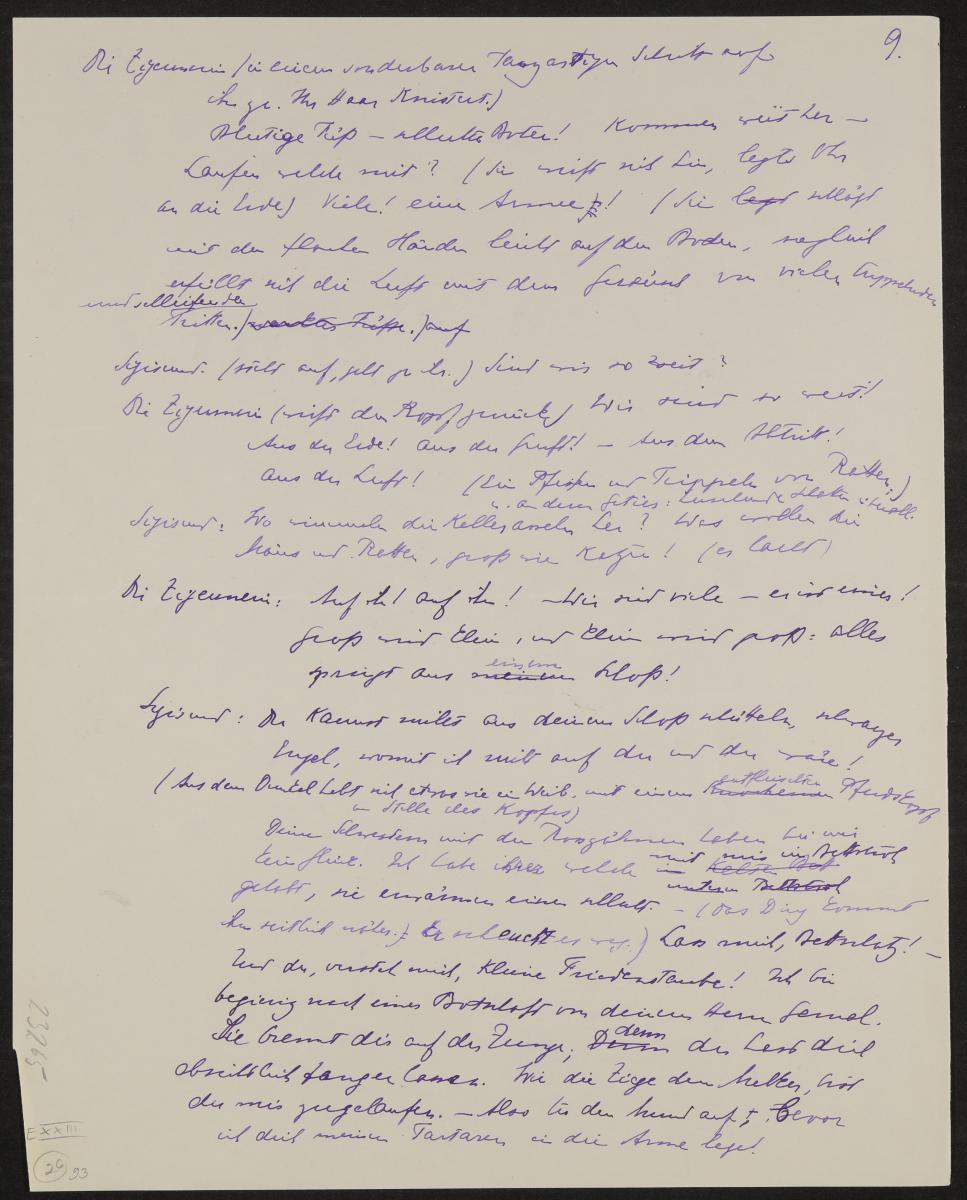 9.
Die Zigeunerin (in einem sonderbaren tanzartigen Schritt auf
ihn zu. Ihr Haar knistert.)
Blutige Füß – schlechte Boten! Kommen weit her –
Laufen welche mit? (Sie wirft sich hin, legt das Ohr
an die Erde) Viele! eine Armee! (Sie legt schlägt
mit den flachen Händen leicht auf den Boden, sogleich
erfüllt sich die Luft mit dem Geräusch von vielen trippelnden
und schleifenden
Tritten.) auf
Sigismund. (steht auf, geht zu ihr.) Sind wir so weit?
Die Zigeunerin (wirft den Kopf zurück) Wir sind so weit!
Aus der Erde! aus der Gruft! – Aus dem Abtritt!
aus der Luft! (Ein Pfeifen und Trippeln von Ratten.)
u. anderm Getier:
Sigismund: Wo wimmeln die Kellerasseln her? Was wollen die
Mäus und Ratten, groß wie Katzen! (er lacht)
Die Zigeunerin: Auf ihn! auf ihn! – Wir sind viele – er ist einer!
Groß wird klein, und klein wird groß: alles
einem
springt aus meinem Schoß!
Sigismund: Du kannst nichts aus deinem Schoß schütteln, schwarzer
Engel, womit ich nicht auf du und du wäre!
(Aus dem Dunkel hebt sich etwas wie ein Weib, mit einem entfleischten Pferdskopf
an Stelle des Kopfes)
Deine Schwestern mit den Rosszähnen haben bei mir
kein Glück. Ich habe ihrer welche mit mir im Bettstroh
gehabt, sie erwärmen einen schlecht. – (Das Ding kommt
ihm seitlich näher.) Er scheucht es weg.) Lass mich, Bettschatz! –
Und du, versteh mich, kleine Friedenstaube! Ich bin
begierig nach einer Botschaft von deinem Herrn Gemal.
Sie brennt dir auf der Zunge, denn du hast dich
absichtlich fangen lassen. Wie die Ziege dem Melker, bist
du mir zugelaufen. – Also tu den Mund auf, bevor
ich dich meinen Tartaren in die Arme lege!
23265
E XXIII
93